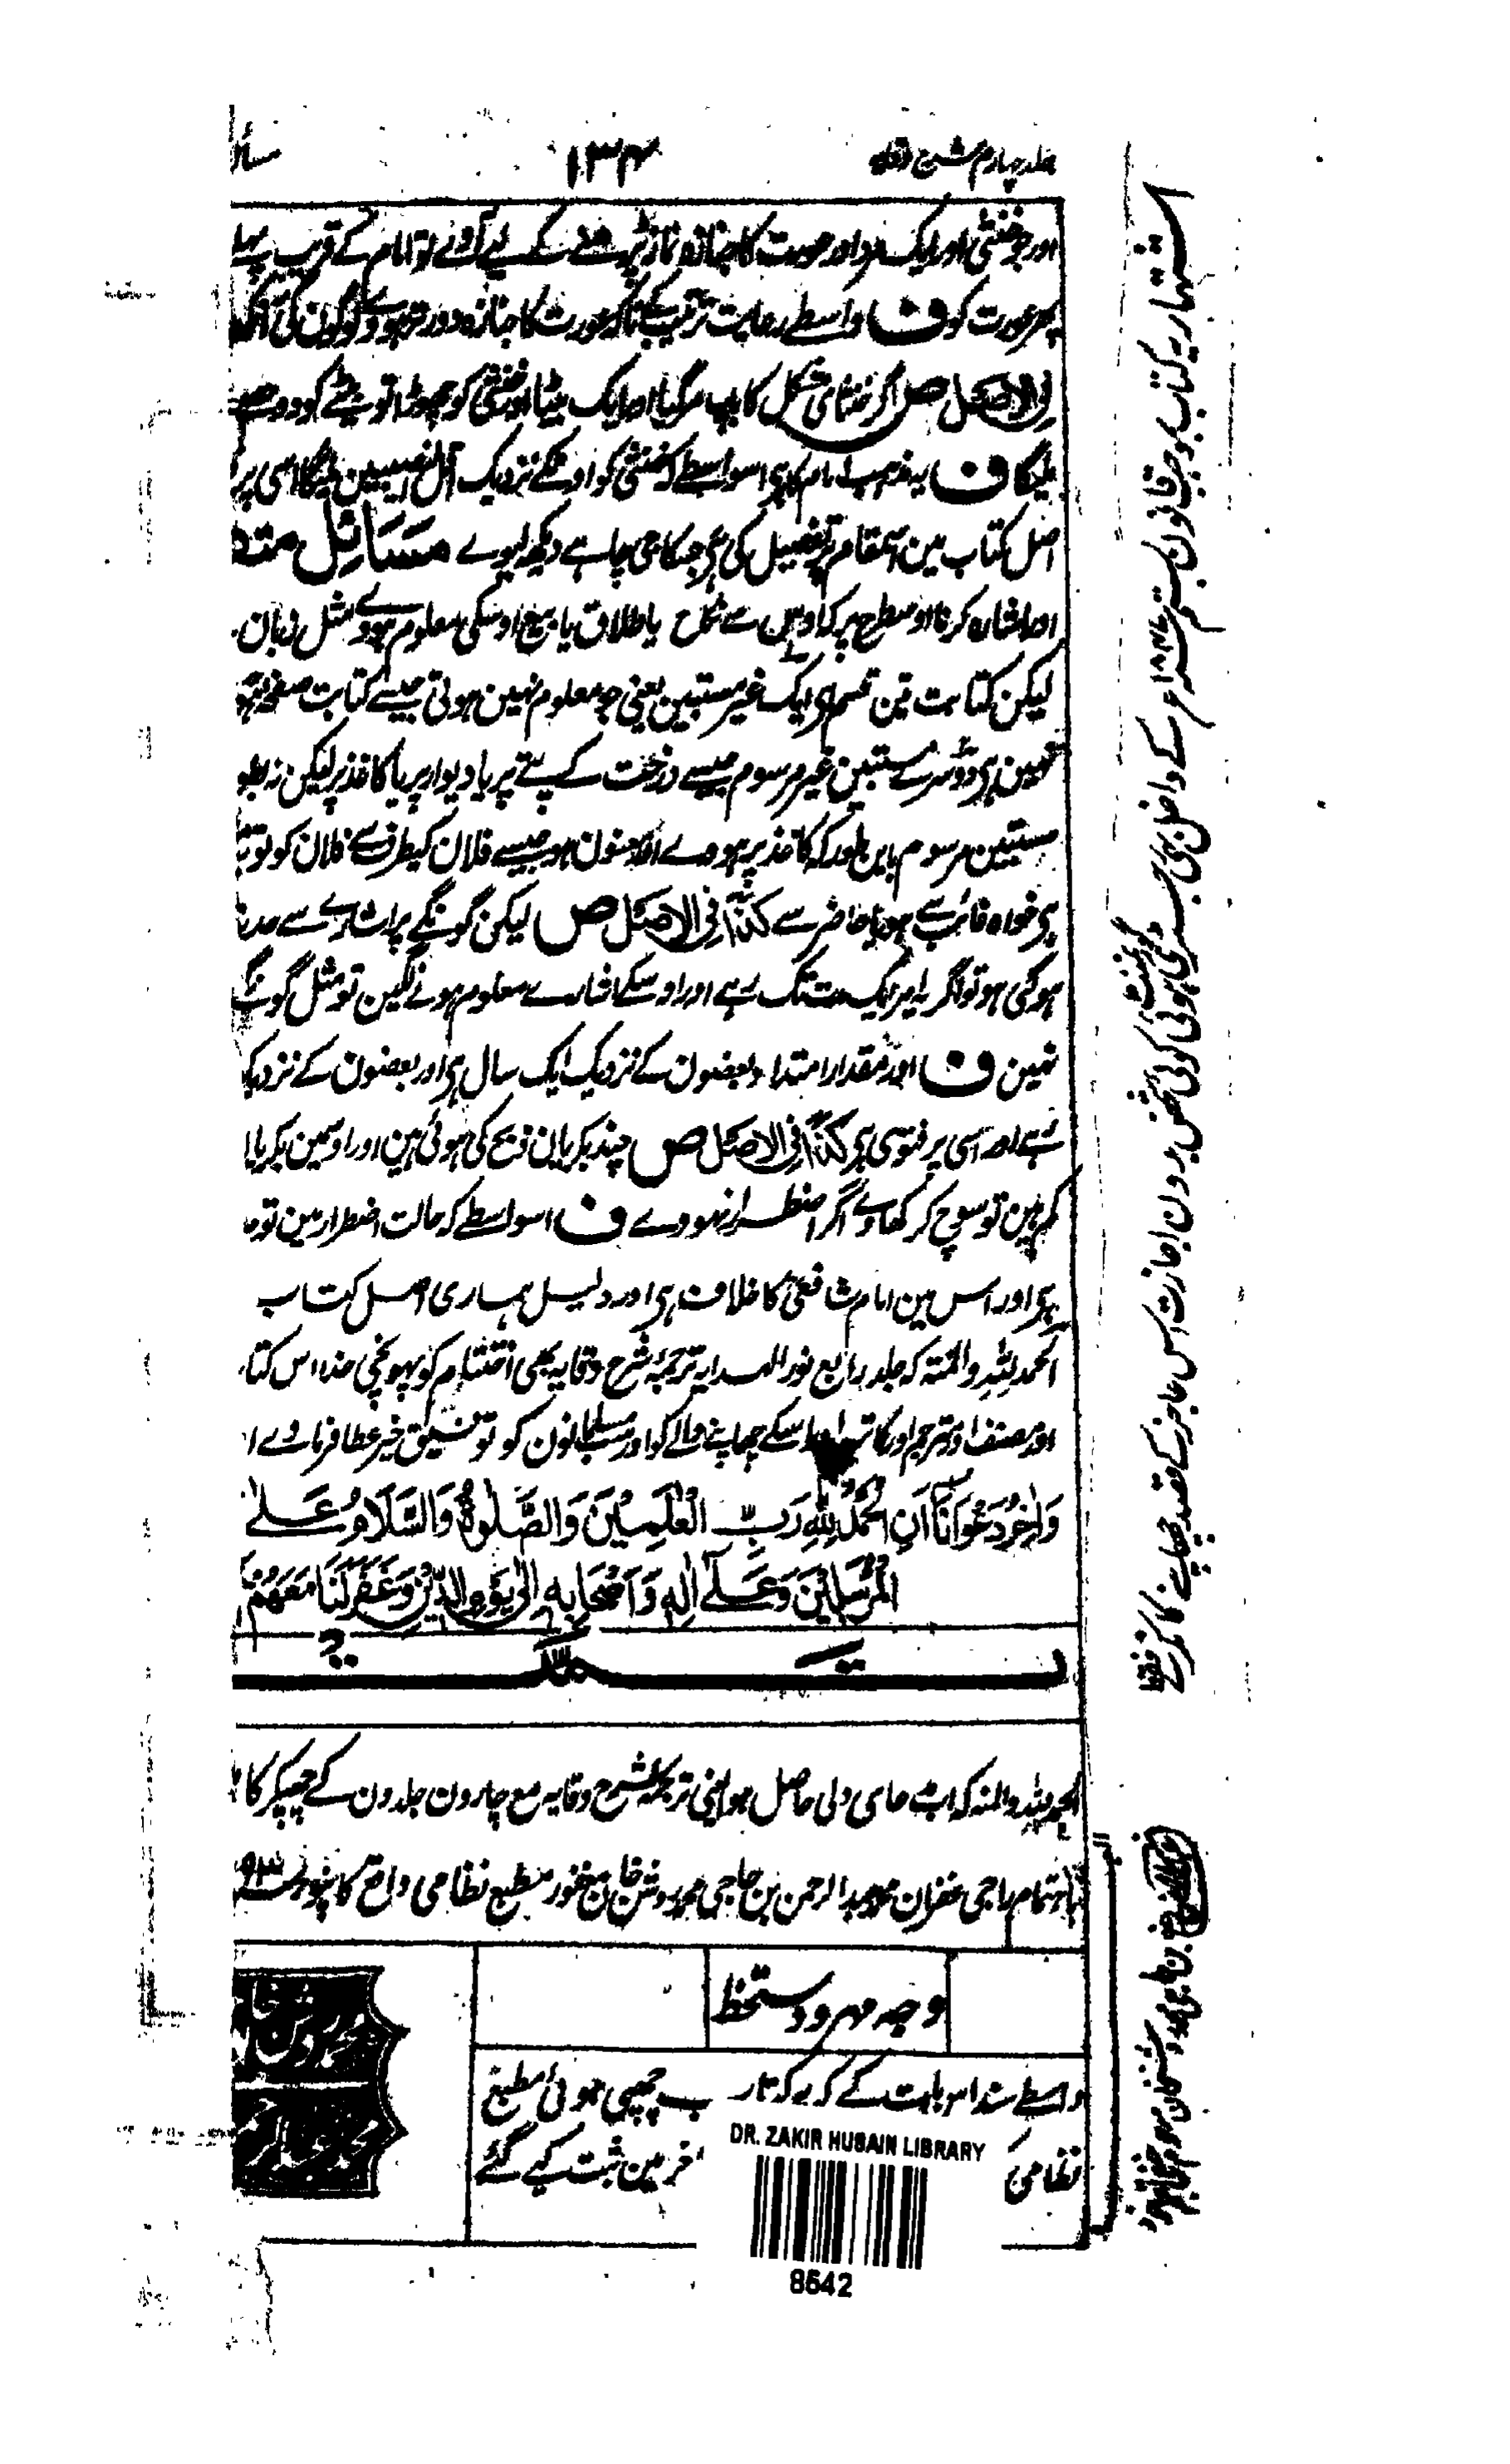 جلد چہارم شرح وقایہ
۱۳۴
مسائل
اور جو خنثی اور ایک مرد اور عورت کا جنازہ نماز پڑھنے کے لیے آوے تو امام کے قریب پہلے
پھر عورت کو ف واسطے رعایت ترتیب کے تاکہ عورت کا جنازہ دور تر ہووے لوگون کی آنکھ
فی الاصل ص اگر خنثای مشکل کا باپ مر گیا اور ایک بیٹا اور خنثی کو چھوڑا تو بیٹے کو دو حصے
ملیگا ف یہ مذہب امام کا ہی اسواسطے کہ خنثی کو اونکے نزدیک اقل نصیبین ملیگا اسی پر
اصل کتاب مین اسمقام پر تفصیل کی ہی جسکا جی چاہے دیکھ لیوے مسائل
اور اشارہ کرنا اوسطرح پر کہ اوس سے نکاح یا طلاق یا بیع اوسکی معلوم ہووے مثل زبان
لیکن کتابت تین قسم ہی ایک غیر مستبین یعنی جو معلوم نہین ہوتی جیسے کتابت صفحۂ
نہین ہی دوسرے مستبین غیر مرسوم جیسے درخت کے پتے پر یا دیوار پر یا کاغذ پر لیکن نہ
مستبین مرسوم باین طور کہ کاغذ پر ہووے اور معنون ہو جیسے فلان کیطرف سے فلان کو تو
ہی خواہ غائب سے ہو یا حاضر سے کذا فی الاصل ص لیکن گونگے پر اشارے سے حد
ہو گئی ہو تو اگر یہ امر ایک مدت تک رہے اور اوسکے اشارے معلوم ہونے لگین تو مثل گونگے
نہین ف اور مقدار امتداد بعضون کے نزدیک ایک سال ہی اور بعضون کے نزدیک
ہے اور اسی پر فتوی ہی کذا فی الاصل ص چند بکریان ذبح کی ہوئی ہین اور اوسمین بکریا
کم ہین تو سوچ کر کھاوے اگر اضطرار نہووے ف اسواسطے کہ حالت اضطرار مین تو
ہی اور اس مین امام شافعی کا خلاف ہی اور دلیل ہماری اصل کتاب
الحمد للہ والمنۃ کہ جلد رابع نور الہدایہ ترجمۂ شرح وقایہ بھی اختتام کو پہونچی خدا اس کتا
اور مصنف اور مترجم اور کاتب اور اسکے چھاپنے والے کو اور سب مسلمانون کو توفیق خیر عطا فرماوے
وَاٰخِرُ دَعْوَانَا اَنِ الْحَمْدُ لِلّٰهِ رَبِّ الْعٰلَمِيْنَ وَالصَّلٰوةُ وَالسَّلَامُ عَلٰى
الْمُرْسَلِيْنَ وَعَلٰى اٰلِهٖ وَاَصْحَابِهٖ اِلٰى يَوْمِ الدِّيْنِ وَغَفَرَ لَنَا مَعَهُمْ
الحمد للہ والمنہ کہ اب مدعای دلی حاصل ہوا یعنی ترجمہ شرح وقایہ مع چارون جلدون کے چھپکر
باہتمام راجی غفران محمد عبد الرحمن بن حاجی محمد روشن خان مغفور مطبع نظامی واقع کانپور
وجہ مہر و دستخط
واسطے سند اس بات کے کہ یہ کتاب چھپی ہوئی مطبع
نظامی خر مین ثبت کیے گئے
DR. ZAKIR HUSAIN LIBRARY
8542
اشتہار یہ کتاب بموجب قانون بستم کے داخل ہی رجسٹری ہوئی کوئی شخص بدون اجازت اس عاجز کے قصد چھاپنے کا نکرے فقط